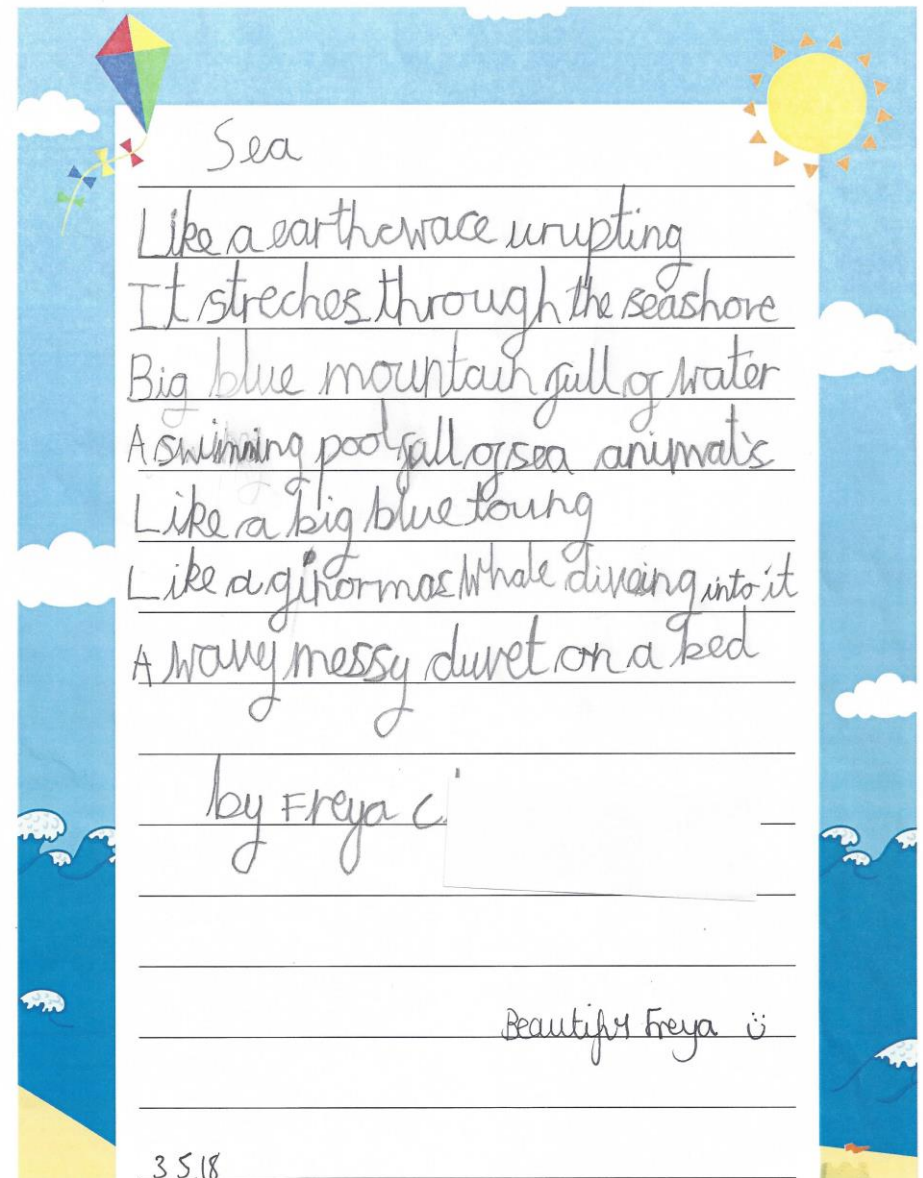 Sea
Like a earthcwace urupting
It streches through the seashore
Big blue mountain full of water
A swimming pool full of sea animals
Like a big blue toung
Like a ginormas whale diveing into it
A wavy messy duvet on a bed
by Freya C.
Beautiful Freya ü
3 5 18